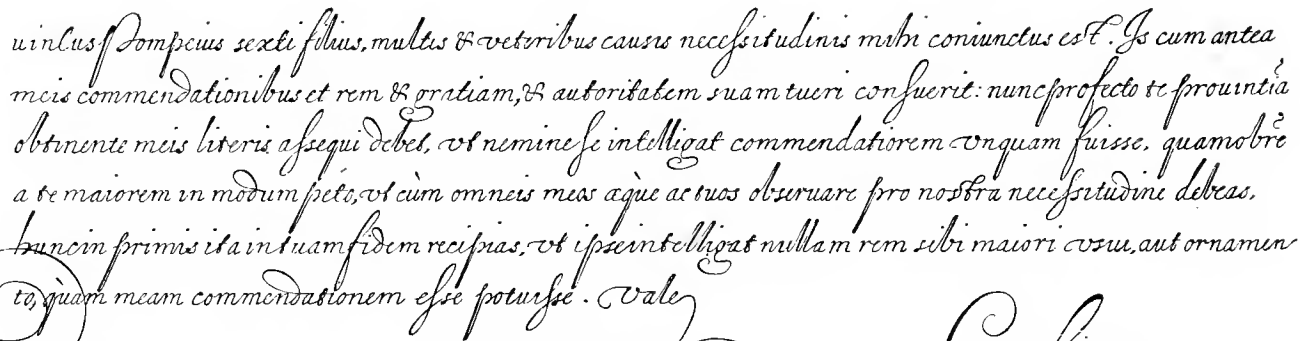 uinctus Pompeius sexti filius, multis & veteribus causis necessitudinis mihi coniunctus est. Is cum antea
meis commendationibus et rem & gratiam, & autoritatem suam tueri consuerit: nunc profecto te prouintiã
obtinente meis literis assequi debet, vt nemine se intelligat commendatiorem vnquam fuisse. quamobrẽ
a te maiorem in modum peto, vt cùm omneis meos æque ac tuos obseruare pro nostra necessitudine debeas,
hunc in primis ita in tuam fidem recipias, vt ipse intelligat nullam rem sibi maiori vsui, aut ornamen
to, quàm meam commendationem esse potuisse. Vale